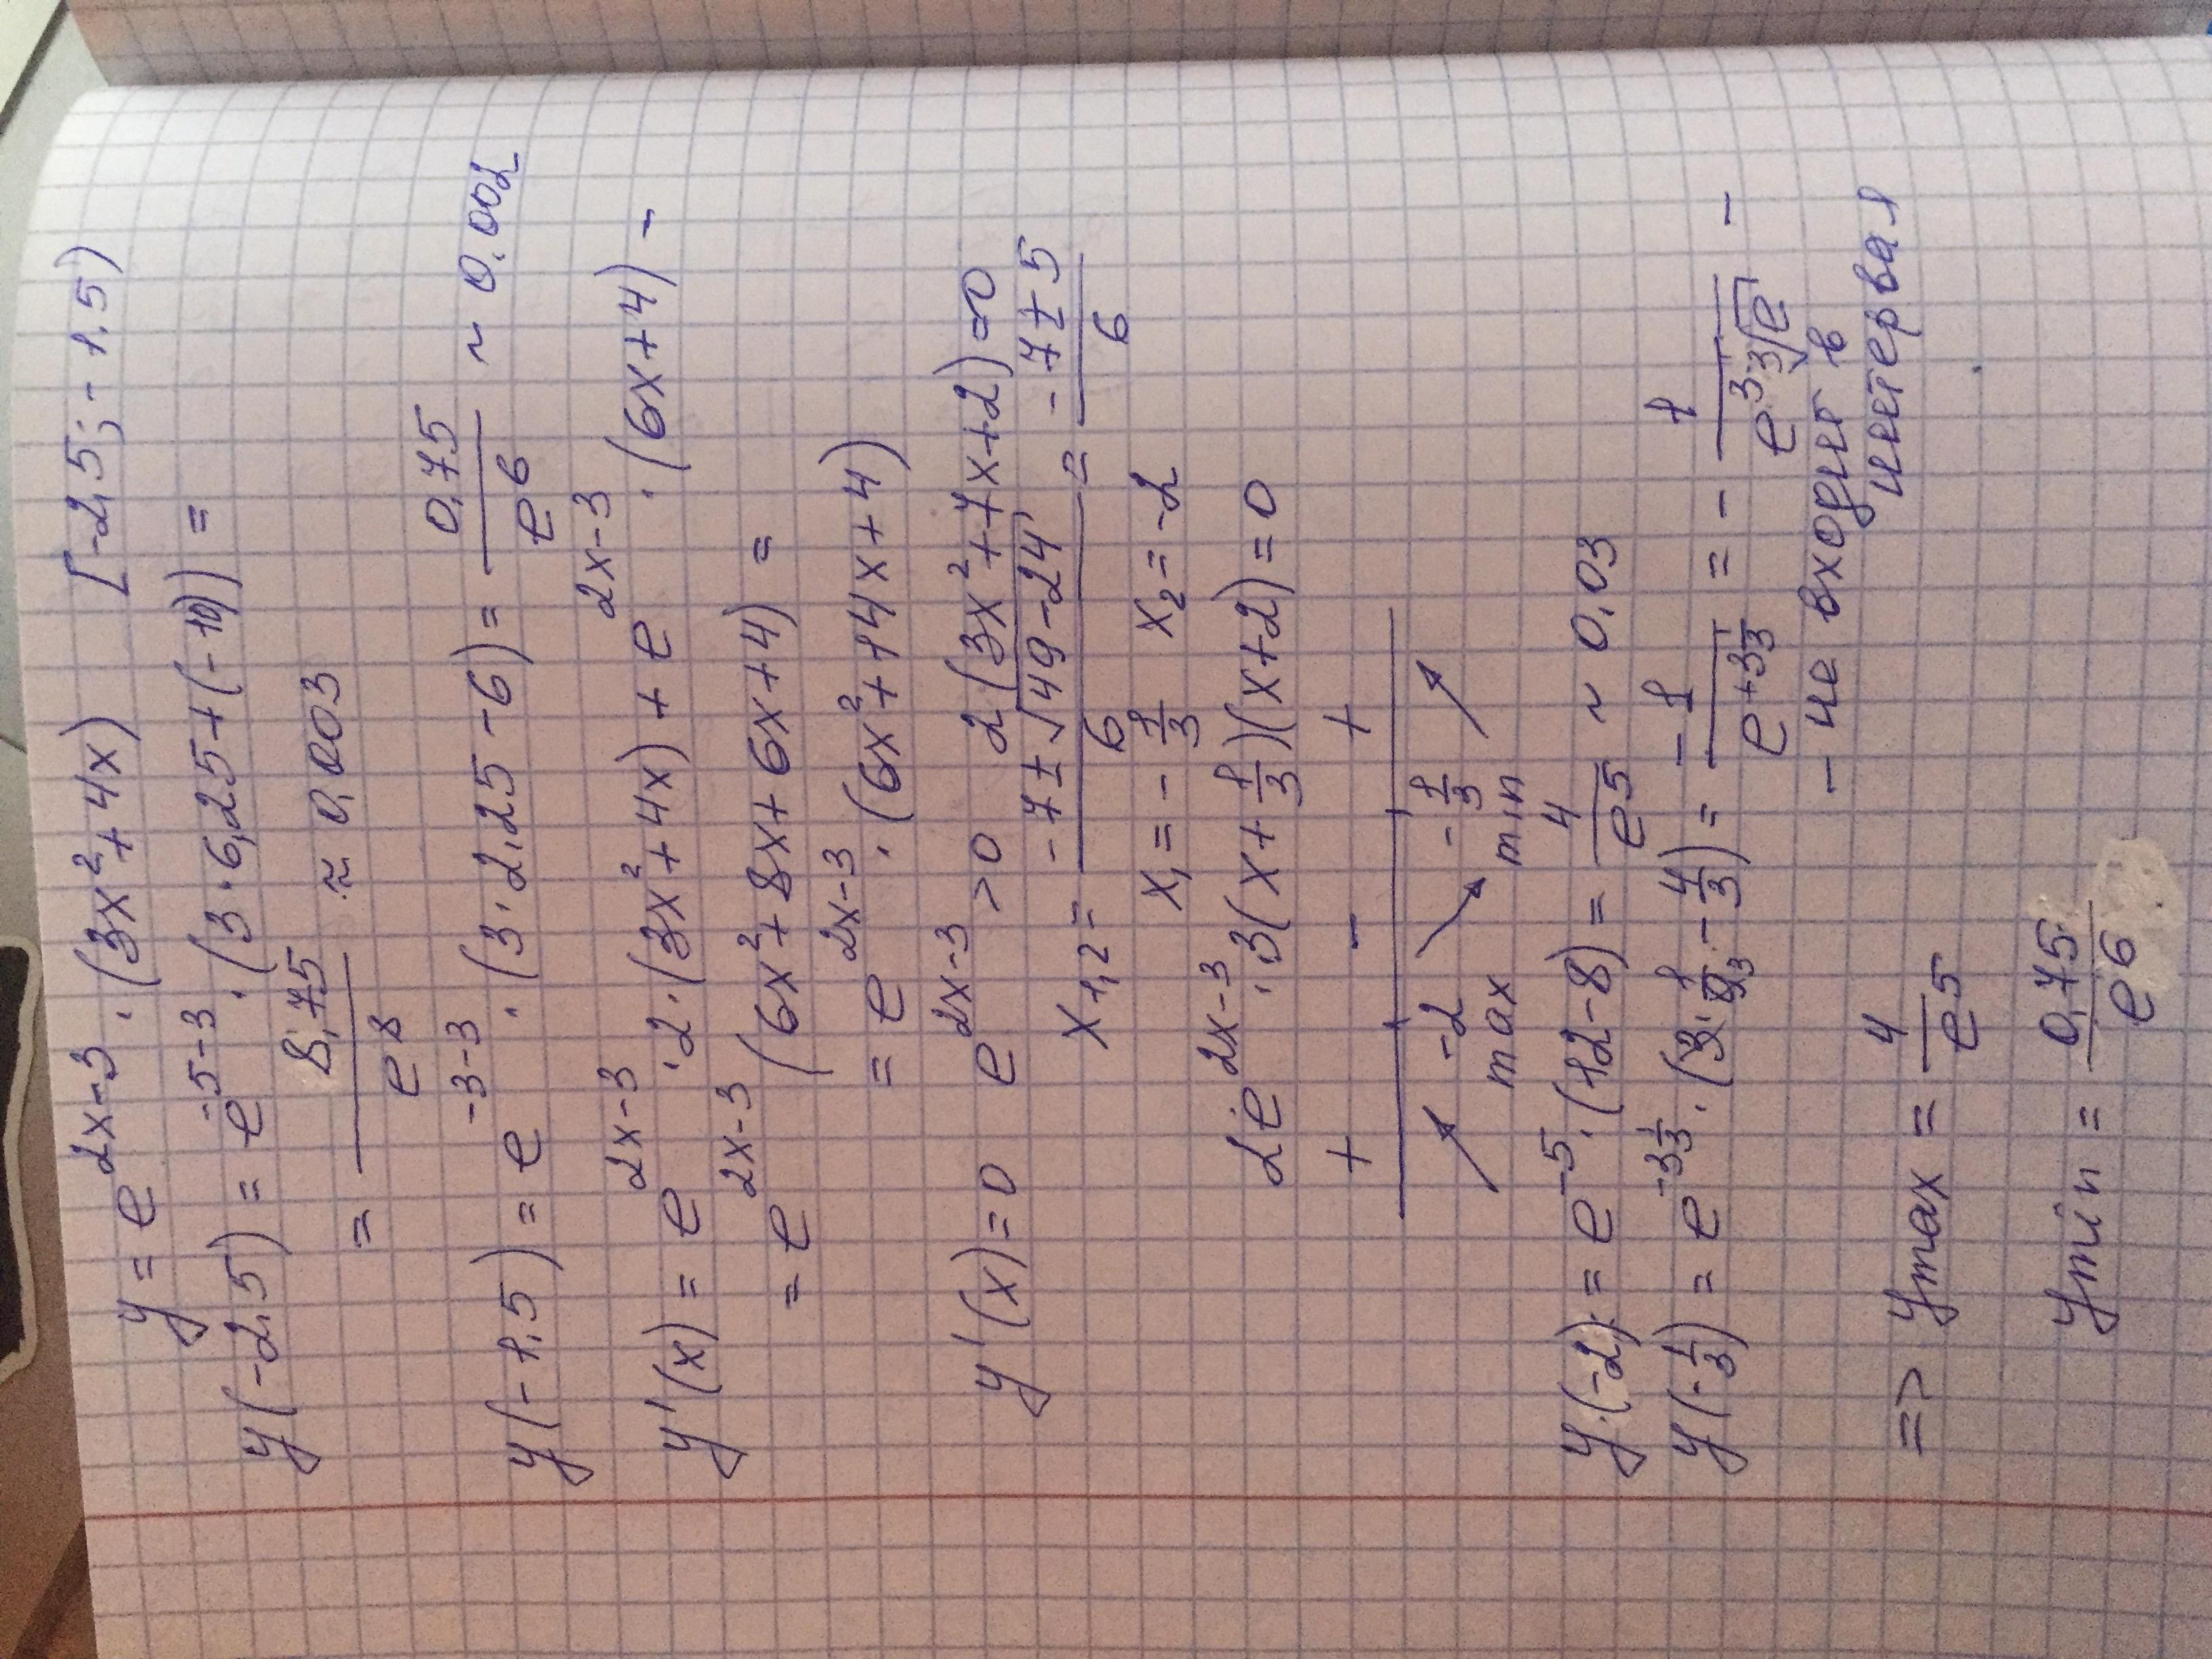 y = e^{2x-3} · (3x² + 4x) [-2,5; -1,5)
y(-2,5) = e^{-5-3} · (3 · 6,25 + (-10)) =
= \frac{8,75}{e^8} ≈ 0,003
y(-1,5) = e^{-3-3} · (3 · 2,25 - 6) = \frac{0,75}{e^6} ~ 0,002
y'(x) = e^{2x-3} · 2 · (3x² + 4x) + e^{2x-3} · (6x + 4) -
= e^{2x-3} (6x² + 8x + 6x + 4) =
= e^{2x-3} · (6x² + 14x + 4)
y'(x) = 0 e^{2x-3} > 0 2(3x² + 7x + 2) = 0
x_{1,2} = \frac{-7 ± \sqrt{49-24}}{6} = \frac{-7 ± 5}{6}
x_1 = -\frac{1}{3} x_2 = -2
2e^{2x-3} · 3(x + \frac{1}{3})(x + 2) = 0
+ - +
↗ -2 ↘ -\frac{1}{3} ↗
max min
y(-2) = e^{-5} · (12 - 8) = \frac{4}{e^5} ~ 0,03
y(-\frac{1}{3}) = e^{-3\frac{1}{3}} · (3 · \frac{1}{9_3} - \frac{4}{3}) = \frac{-1}{e^{+3\frac{1}{3}}} = -\frac{1}{e^3 \sqrt[3]{e}} -
- не входит в
интервал
=> y_{max} = \frac{4}{e^5}
y_{min} = \frac{0,75}{e^6}